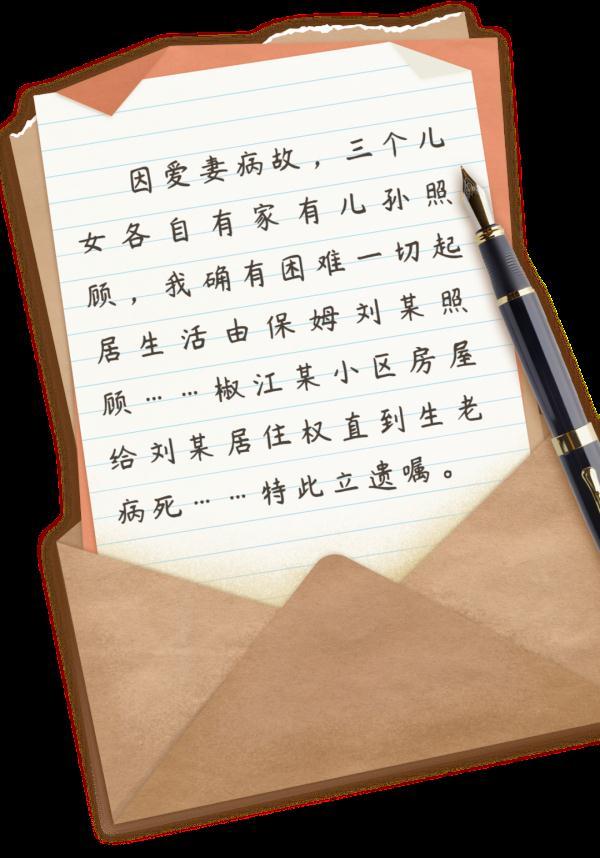 因爱妻病故，三个儿
女各自有家有儿孙照
顾，我确有困难一切起
居生活由保姆刘某照
顾……椒江某小区房屋
给刘某居住权直到生老
病死……特此立遗嘱。